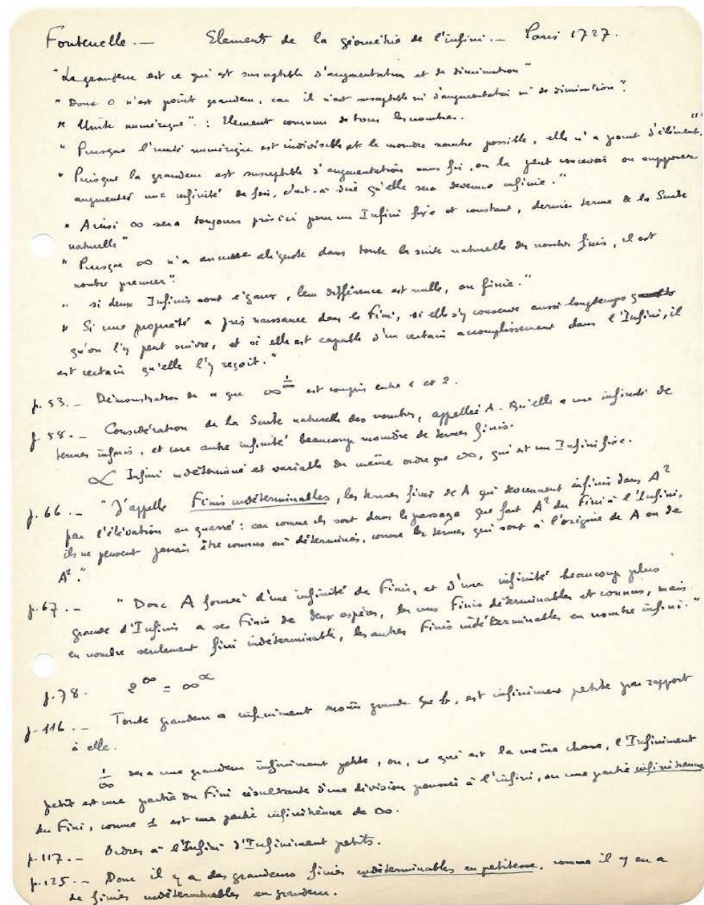 Fontenelle. — Elements de la géométrie de l'infini. — Paris 1727.
"La grandeur est ce qui est susceptible d'augmentation et de diminution"
" Donc 0 n'est point grandeur, car il n'est susceptible ni d'augmentation ni de diminution".
" Unité numérique" : Element commun de tous les nombres.
" Puisque l'unité numérique est indivisible et le moindre nombre possible, elle n'a point d'élément."
" Puisque la grandeur est susceptible d'augmentation sans fin, on la peut concevoir ou supposer
augmentée une infinité de fois, c'est-à-dire qu'elle sera devenue infinie."
" Ainsi ∞ sera toujours pris ici pour un Infini fixe et constant, dernier terme de la Suite
naturelle"
" Puisque ∞ n'a aucune aliquote dans toute la suite naturelle des nombres finis, il est
nombre premier".
" si deux Infinis sont égaux, leur différence est nulle, ou finie."
" Si une propriété a pris naissance dans le Fini, si elle s'y conserve aussi longtemps
qu'on l'y peut suivre, et si elle est capable d'un certain accomplissement dans l'Infini, il
est certain qu'elle l'y reçoit."
p. 53. — Démonstration de ce que ∞^(1/∞) est compris entre 1 et 2.
p. 58. — Considération de la Suite naturelle des nombres, appellée A. Qu'elle a une infinité de
termes infinis, et une autre infinité beaucoup moindre de termes finis.
∝ Infini indéterminé et variable du même ordre que ∞, qui est un Infini fixe.
p. 66. — "J'appelle Finis indéterminables, les termes finis de A qui deviennent infinis dans A²
par l'élévation au quarré : car comme ils sont dans le passage que fait A² du Fini à l'Infini,
ils ne peuvent jamais être connus ni déterminés, comme les termes, qui sont à l'origine de A ou de
A²."
p. 67. — " Donc A formée d'une infinité de Finis, et d'une infinité beaucoup plus
grande d'Infinis a ses Finis de deux espèces, les uns Finis déterminables et connus, mais
en nombre seulement fini indéterminable, les autres Finis indéterminables en nombre infini."
p. 78. 2^∞ = ∞^∝
p. 116. — Toute grandeur a infiniment moins grande que b, est infiniment petite par rapport
à elle.
1/∞ sera une grandeur infiniment petite, ou, ce qui est la même chose, l'Infiniment
petit est une partie du Fini résultante d'une division poussée à l'infini, ou une partie infinitième
du Fini, comme 1 est une partie infinitième de ∞.
p. 117. — Ordres à l'Infini d'Infiniment petits.
p. 125. — Donc il y a des grandeurs finies indéterminables en petitesse, comme il y en a
de finies indéterminables en grandeur.